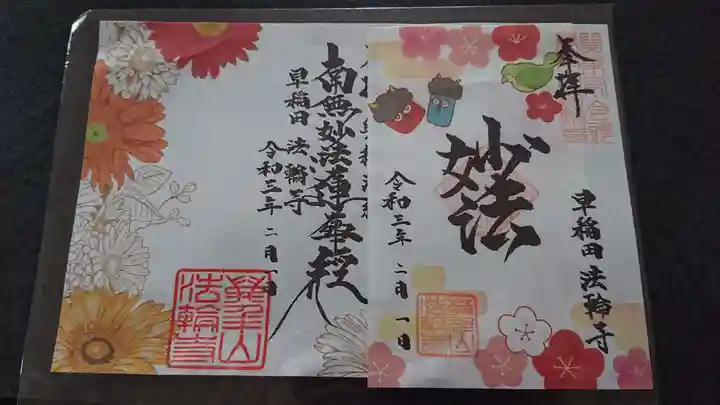 奉拝
妙法
早稲田 法輪寺
令和三年 二月 一日
南無妙法蓮華経
早稲田 法輪寺
令和三年 二月 一日
法輪寺